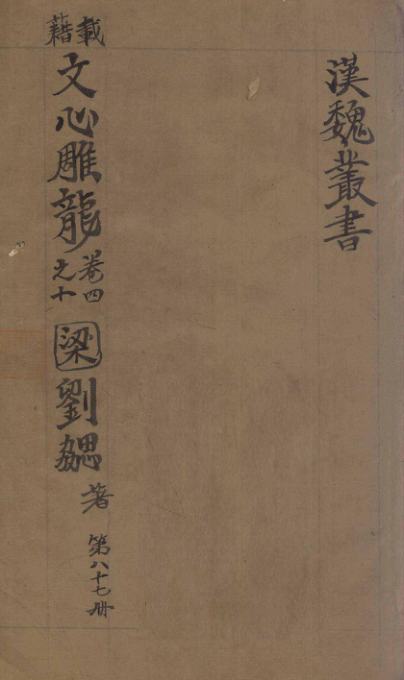 漢魏叢書
載籍
文心雕龍 卷四之十 梁 劉勰 著 第八十七册